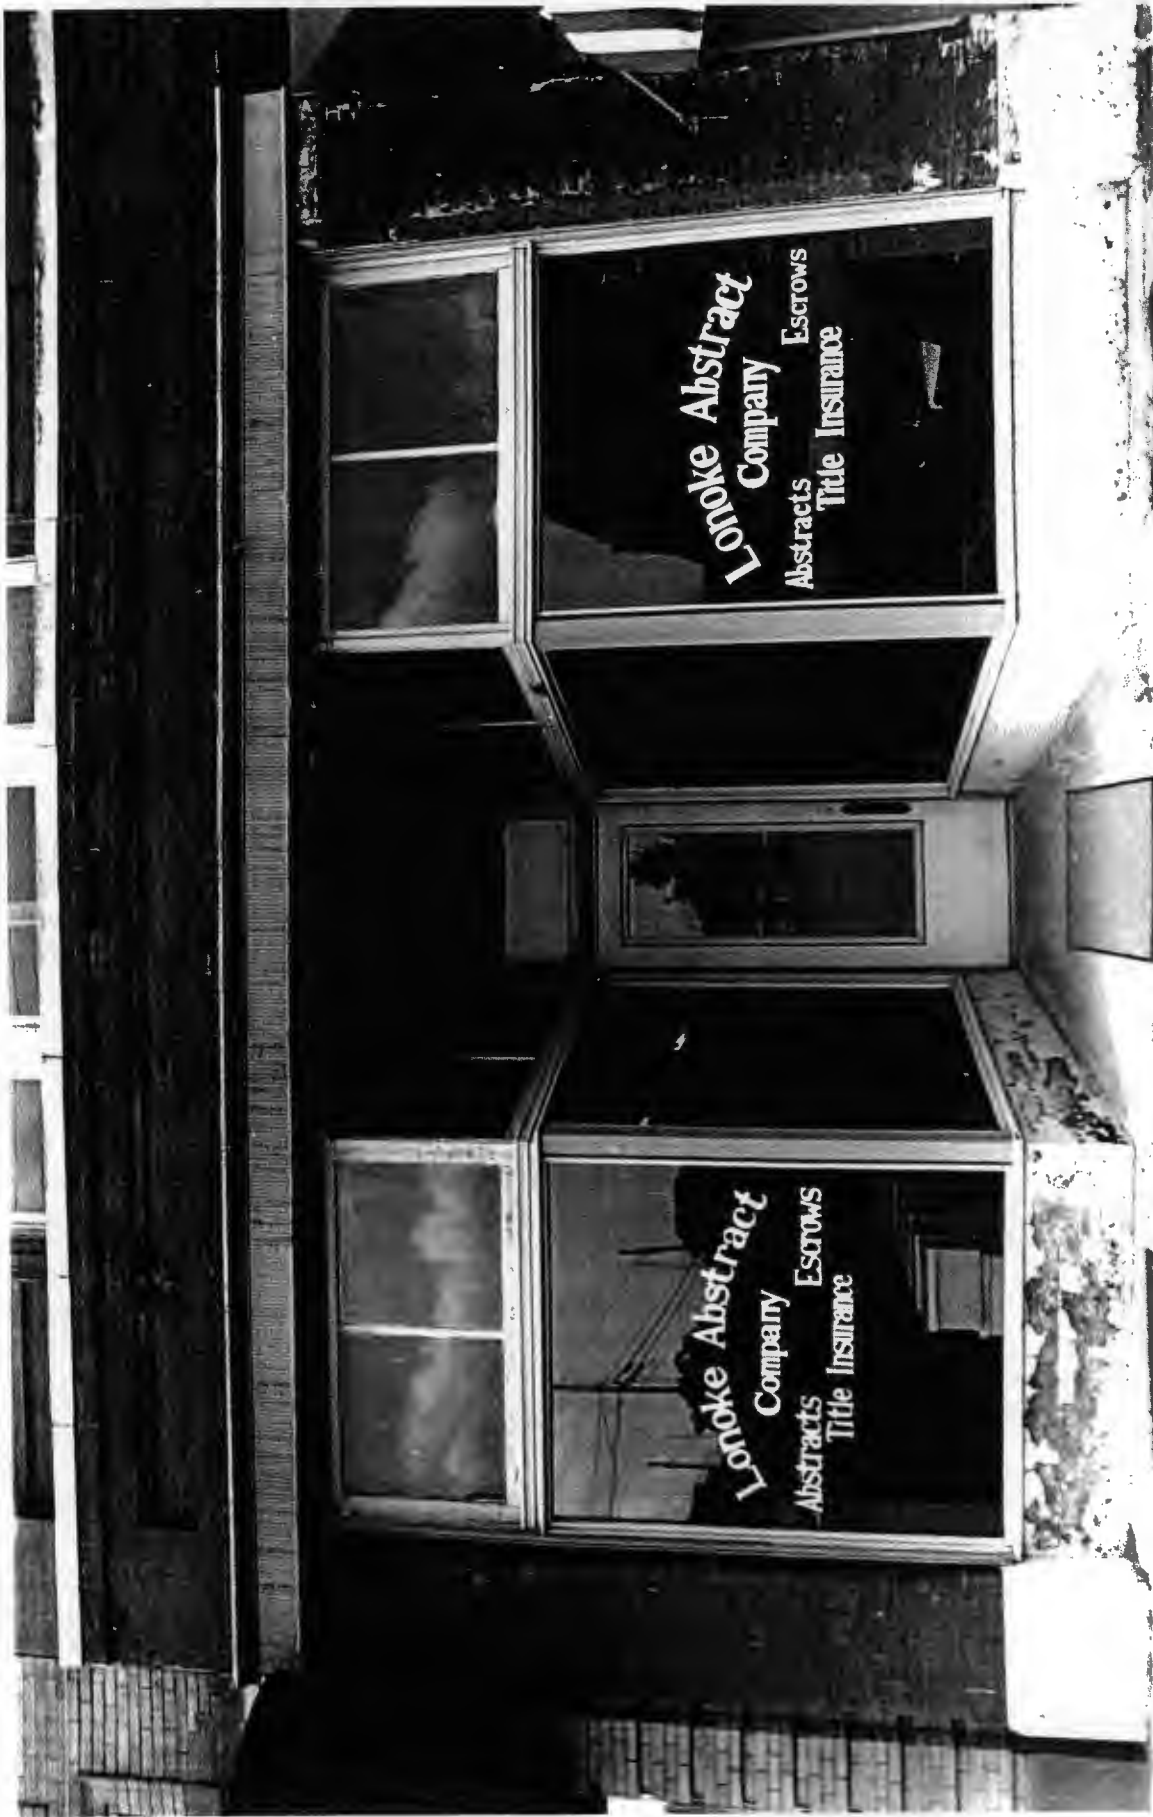 Lonoke Abstract
Company
Abstracts Escrows
Title Insurance
Lonoke Abstract
Company
Abstracts Escrows
Title Insurance